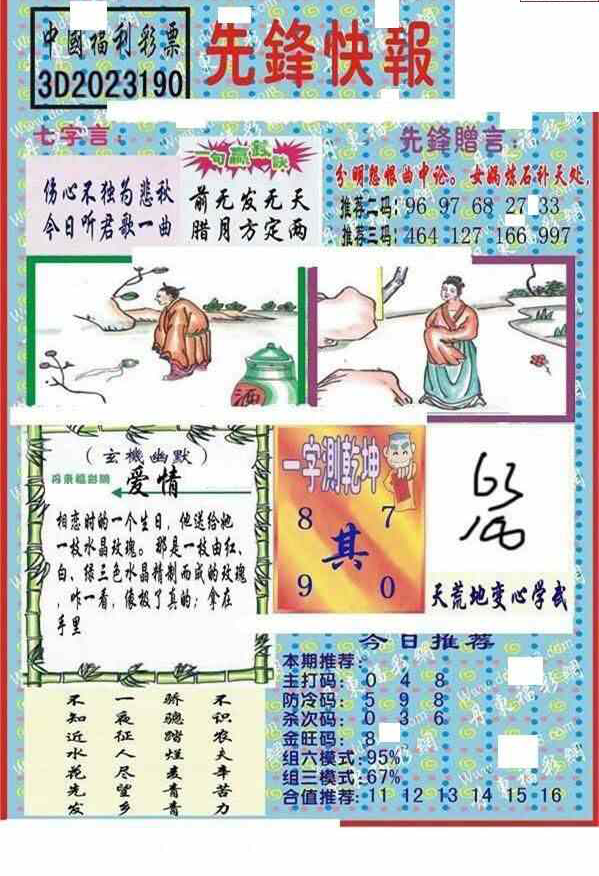 中國福利彩票
3D2023190
先鋒快報
七字言:
伤心不独为悲秋
今日听君歌一曲
一句赢
前无发无天
腊月方定两
先鋒贈言:
分明怨恨曲中论。女娲炼石补天处,
推荐二码: 96 97 68 27 33
推荐三码: 464 127 166 997
酒
(玄機幽默)
爱情
相恋时的一个生日,他送给她
一枝水晶玫瑰。那是一枝由红、
白、绿三色水晶精制而成的玫瑰
,咋一看,像极了真的;拿在
手里
一字測乾坤
8 7
其
9 0
天荒地变心学武
今日推荐
本期推荐:
主打码: 0 4 8
防冷码: 5 9 8
杀次码: 0 3 6
金旺码: 8
组六模式:95%
组三模式:67%
合值推荐:11 12 13 14 15 16
不知近水花先发
一夜征人尽望乡
骄骢踏烂麦青青
不识农夫辛苦力